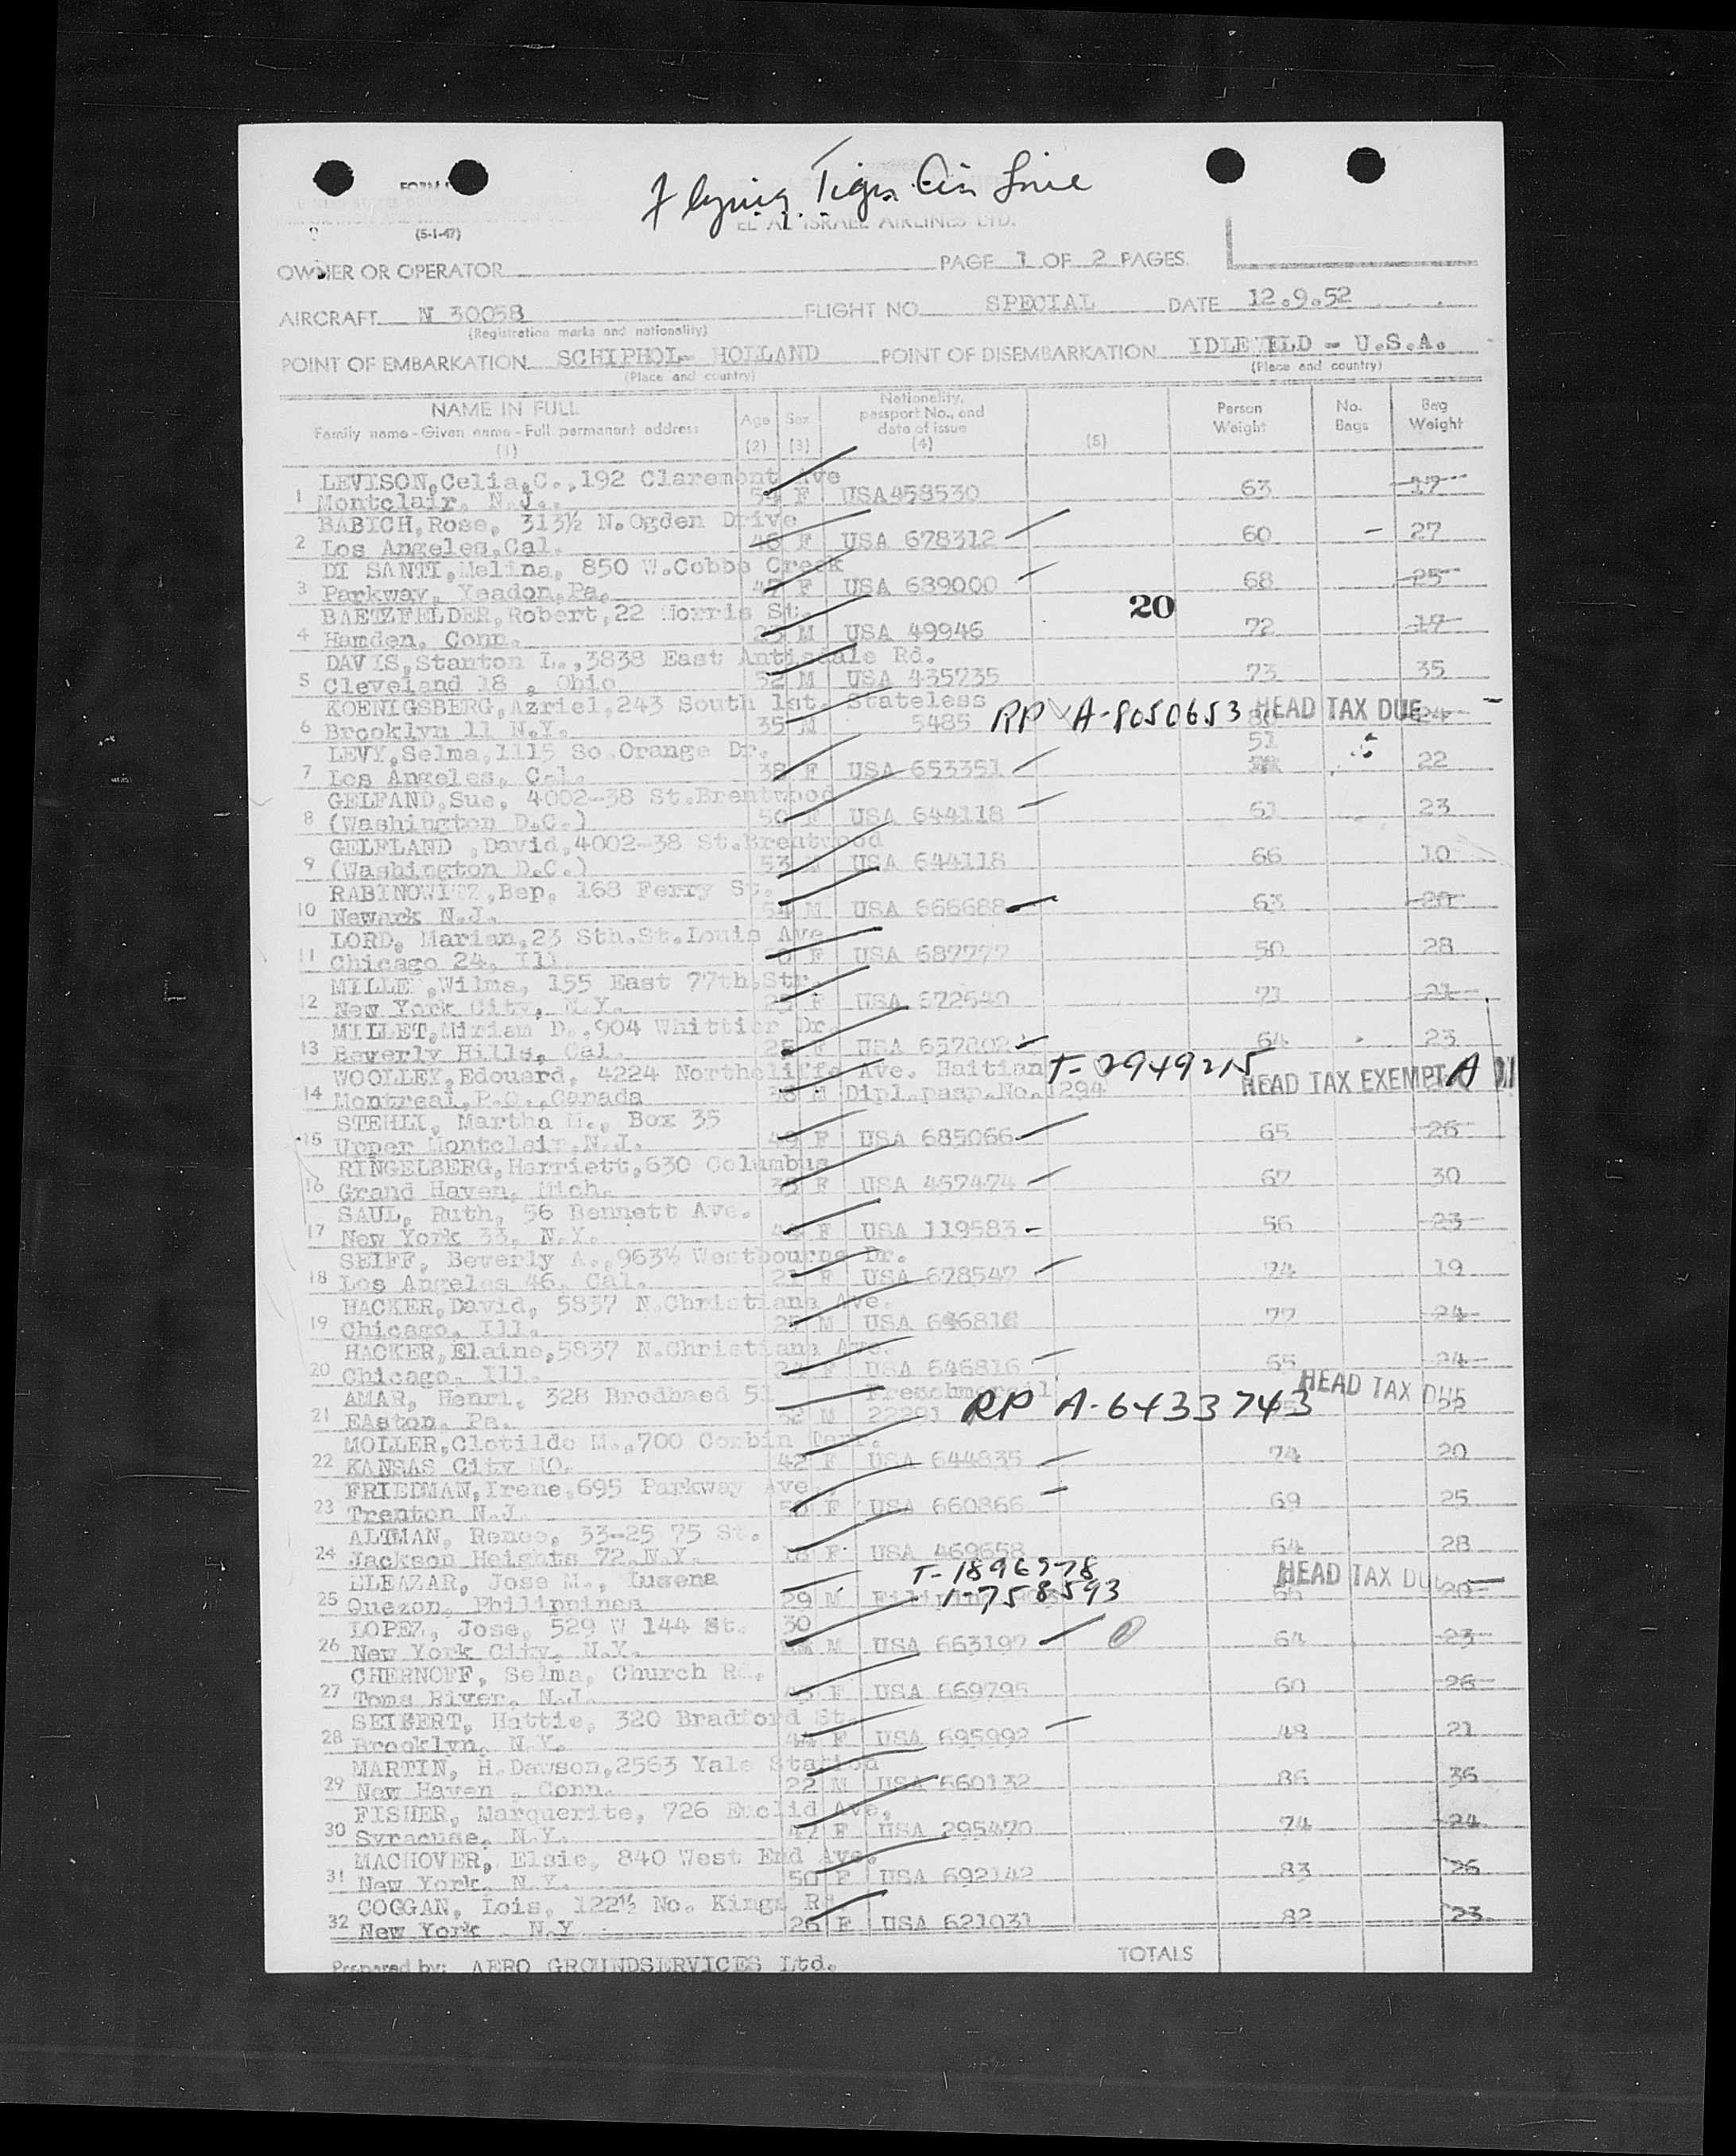 Flying Tiger Air Line
FORM I
(5-1-47)
EL AL ISRAEL AIRLINES LTD.
OWNER OR OPERATOR PAGE 1 OF 2 PAGES
AIRCRAFT N 30058 FLIGHT NO. SPECIAL DATE 12.9.52
(Registration marks and nationality)
POINT OF EMBARKATION SCHIPHOL- HOLLAND POINT OF DISEMBARKATION IDLEWILD - U.S.A.
(Place and country) (Place and country)
NAME IN FULL Age Sex Nationality, passport No., and date of issue Person Weight No. Bags Bag Weight
Family name - Given name - Full permanent address
(1) (2) (3) (4) (5)
LEVISON, Celia, C., 192 Claremont Ave
1 Montclair, N.J. F USA 458530 63 17
BABICH, Rose, 313½ N. Ogden Drive
2 Los Angeles, Cal. 48 F USA 678312 60 - 27
DI SANTI, Melina, 850 W. Cobbs Creek
3 Parkway, Yeadon, Pa. 47 F USA 689000 68 25
20
BAETZFELDER, Robert, 22 Morris St.
4 Hamden, Conn. 23 M USA 49946 72 17
DAVIS, Stanton L., 3838 East Antisdale Rd.
5 Cleveland 18, Ohio 52 M USA 435735 73 35
KOENIGSBERG, Azriel, 243 South 1st. Stateless
6 Brooklyn 11 N.Y. 35 M 5485 RP A-8050653 HEAD TAX DUE 24
LEVY, Selma, 1115 So. Orange Dr. 51
7 Los Angeles, Cal. 38 F USA 653351 22
GELFAND, Sue, 4002-38 St. Brentwood
8 (Washington D.C.) 50 F USA 644118 61 23
GELFLAND , David, 4002-38 St. Brentwood
9 (Washington D.C.) 53 M USA 644118 66 10
RABINOWITZ, Bep, 168 Ferry St.
10 Newark N.J. 54 M USA 666688 63 20
LORD, Marian, 23 Sth. St. Louis Ave
11 Chicago 24, Ill. F USA 687777 50 28
MILLET, Wilma, 155 East 77th Str.
12 New York City, N.Y. 25 F USA 672640 71 21
MILLET, Miriam D., 904 Whittier Dr.
13 Beverly Hills, Cal. 25 F USA 657802 64 23
WOOLLEY, Edouard, 4224 Northcliffe Ave. Haitian T-2949215
14 Montreal, P.Q., Canada M Dipl. pasp. No. 1294 HEAD TAX EXEMPT A
STEHLI, Martha M., Box 35
15 Upper Montclair, N.J. 49 F USA 685066 65 26
RINGELBERG, Harriett, 630 Columbus
16 Grand Haven, Mich. 35 F USA 457474 67 30
SAUL, Ruth, 56 Bennett Ave.
17 New York 33, N.Y. F USA 119583 56 23
SEIFF, Beverly A., 963½ Westbourne Dr.
18 Los Angeles 46, Cal. 21 F USA 678547 74 19
HACKER, David, 5837 N. Christiana Ave.
19 Chicago, Ill. 25 M USA 646816 77 24
HACKER, Elaine, 5837 N. Christiana Ave.
20 Chicago, Ill. 24 F USA 646816 65 24
AMAR, Henri, 328 Brodhaed 51 HEAD TAX DUE
21 EAston, Pa. 32 M RP A-6433743
MOLLER, Clotilde M., 700 Corbin Terr.
22 KANSAS City MO. 42 F USA 644835 74 20
FRIEDMAN, Irene, 695 Parkway Ave.
23 Trenton N.J. F USA 660866 69 25
ALTMAN, Renee, 33-25 75 St.
24 Jackson Heights 72, N.Y. 18 F USA 469658 64 28
ELEAZAR, Jose M., Lusena T-1896778 HEAD TAX DUE
25 Quezon, Philippines 29 M 1-758593 20
LOPEZ, Jose, 529 W 144 St. 30
26 New York City, N.Y. M USA 663197 64 23
CHERNOFF, Selma, Church Rd.
27 Toms River, N.J. F USA 669795 60 26
SEIGERT, Hattie, 320 Bradford St.
28 Brooklyn, N.Y. 44 F USA 695992 48 21
MARTIN, H. Dawson, 2563 Yale Station
29 New Haven , Conn. 22 M USA 660132 86 36
FISHER, Marguerite, 726 Euclid Ave.
30 Syracuse, N.Y. 47 F USA 295470 74 24
MACHOVER, Elsie, 840 West End Ave.
31 New York, N.Y. 50 F USA 692142 83 26
COGGAN, Lois, 122½ No. Kings Rd
32 New York N.Y 26 F USA 621031 82 23
Prepared by: AERO GROUNDSERVICES Ltd. TOTALS